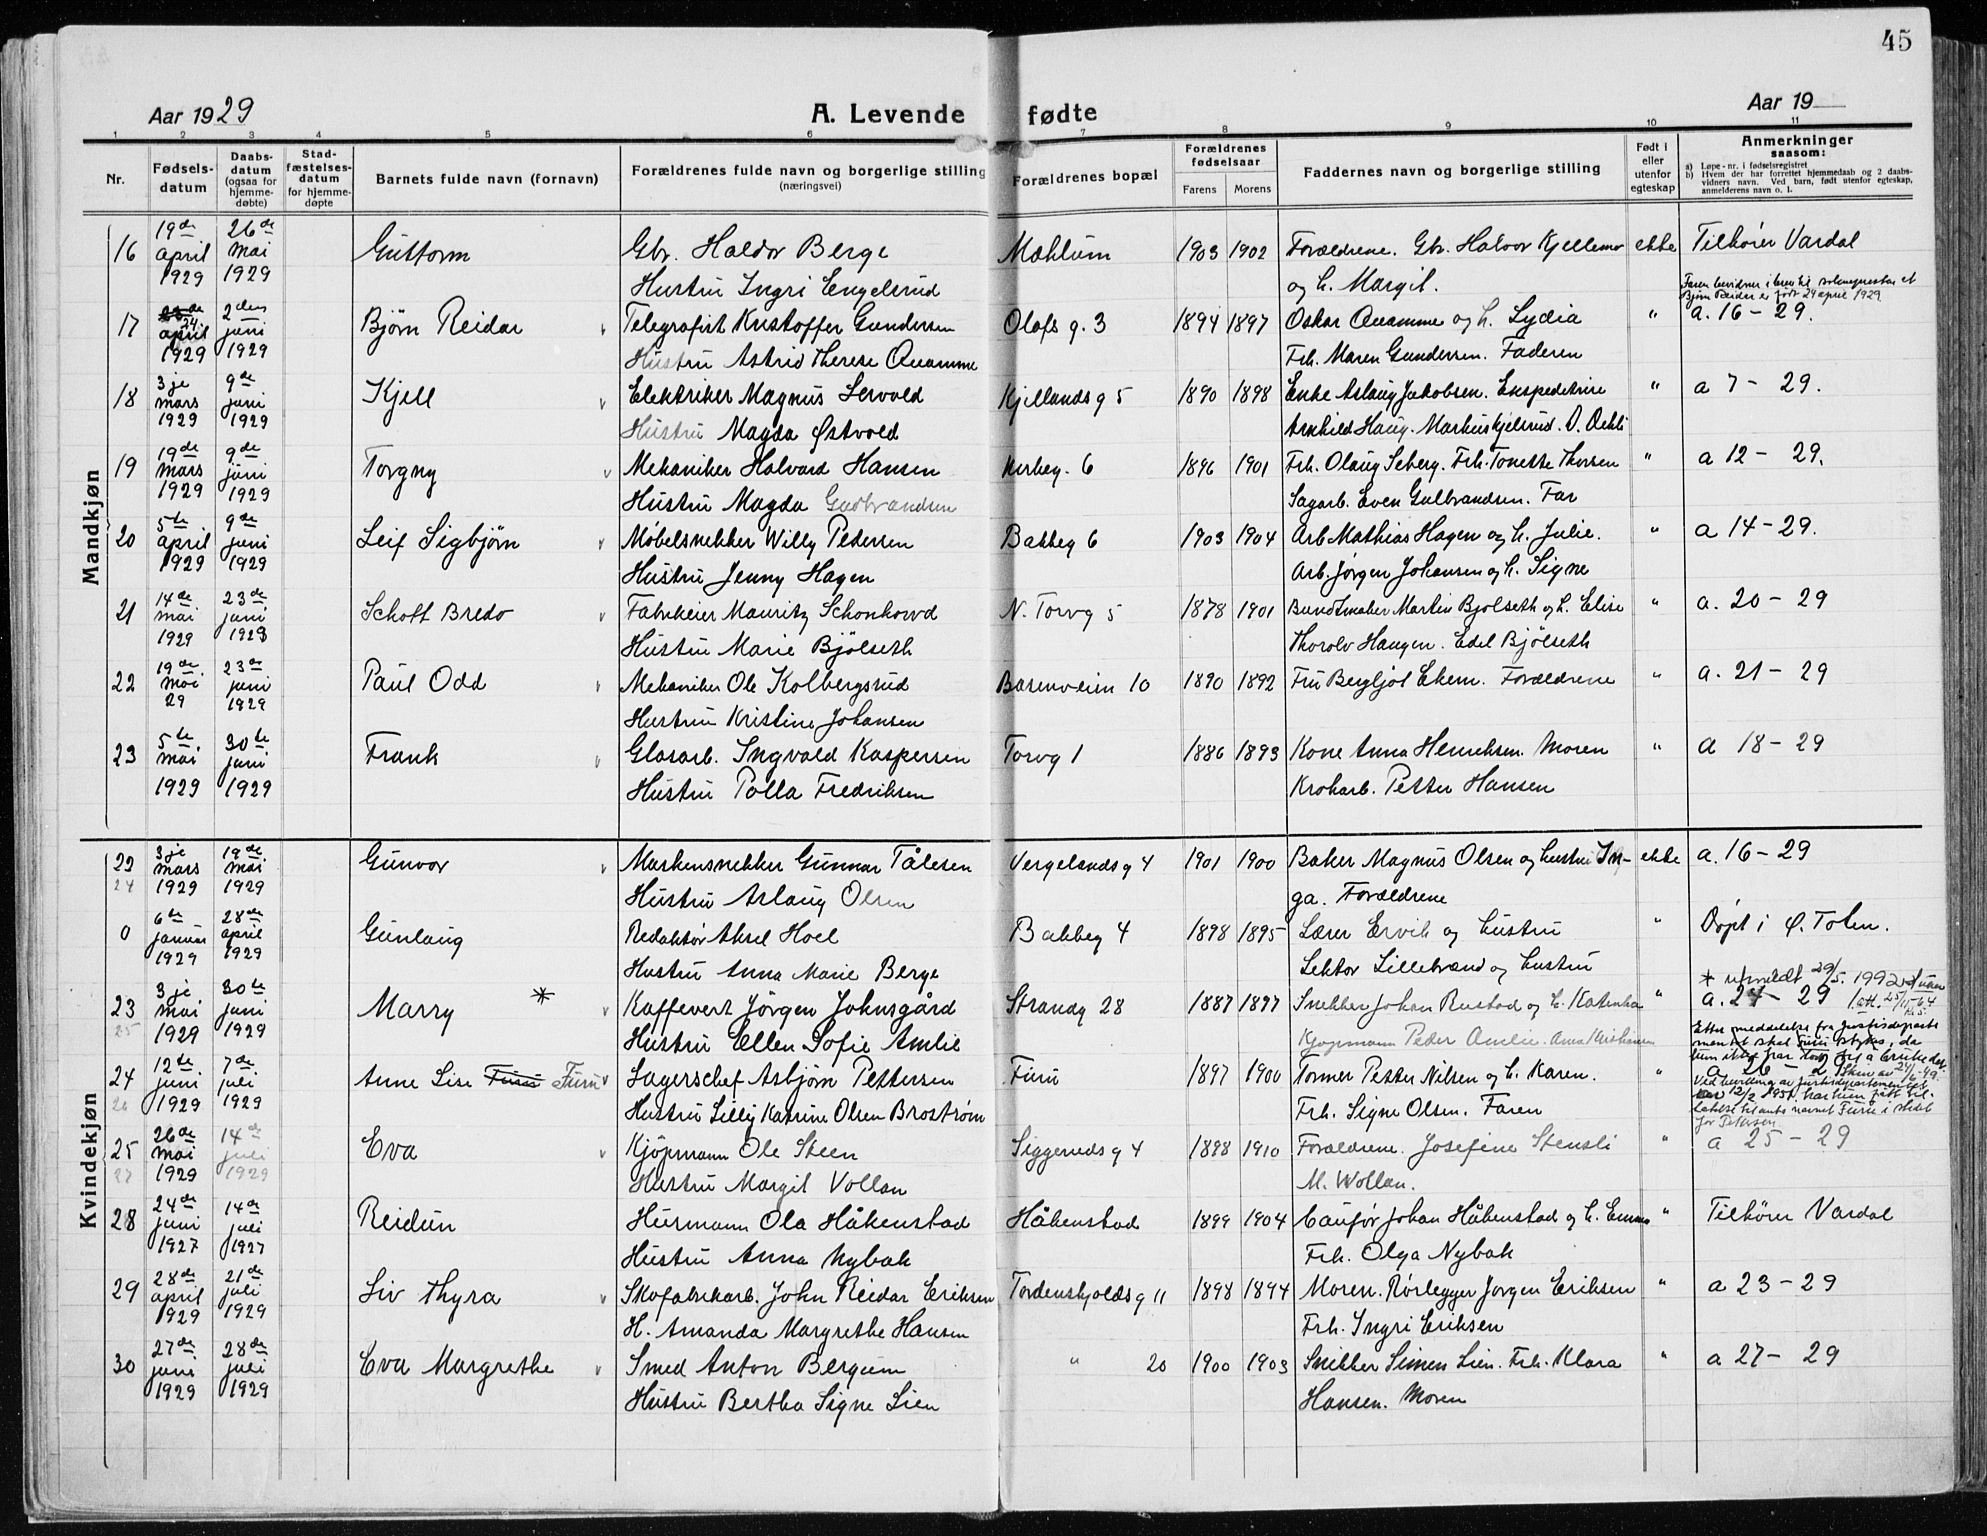 45
Aar 1929 A. Levende fødte Aar 19
1 2 3 4 5 6 7 8 9 10 11
Nr. Fødsels-datum Daabs-datum (ogsaa for hjemme-døbte) Stad-fæstelses-datum for hjemme-døpte Barnets fulde navn (fornavn) Forældrenes fulde navn og borgerlige stilling (næringsvei) Forældrenes bopæl Forældrenes fødselsaar Farens Morens Faddernes navn og borgerlige stilling Født i eller utenfor egteskap Anmerkninger saasom:
a) Løpe-nr. i fødselsregistret
b) Hvem der har forrettet hjemmedaab og 2 daabs-vidners navn. Ved barn, født utenfor egteskap, anmelderens navn o. l.
Mandkjøn
16 19de april 1929 26de mai 1929 Guttorm Gbr. Haldor Berge Mæhlum 1903 1902 Forældrene. Gbr. Halvor Kjellemo ekte Tilhører Vardal
Hustru Ingri Engelsrud og h. Margit.
Faren bevidner i brev til soknepresten at
Bjørn Reidar er født 24 april 1929
17 24 april 1929 2den juni 1929 Bjørn Reidar Telegrafist Kristoffer Gundersen Olafs g. 3 1894 1897 Oskar Quamme og h. Lydia " a. 16 - 29.
Hustru Astrid Therese Quamme Frk. Maren Gundersen. Faderen
18 3je mars 1929 9de juni 1929 Kjell Elektriker Magnus Servold Kjellands g 5 1890 1898 Enke Aslaug Jakobsen. Ekspeditrise " a 7 - 29.
Hustru Magda Østvold Arnhild Haug. Markus Kjelsrud. O. Oehli
19 19de mars 1929 9de juni 1929 Torgny Mekaniker Halvard Hansen Kirkeg. 6 1896 1901 Frk. Olaug Seberg. Frk. Tonette Thorsen " a 12 - 29.
Hustru Magda Gudbrandsen Sagarb. Even Gulbrandsen. Far
20 5te april 1929 9de juni 1929 Leif Sigbjørn Møbelsnekker Willy Pedersen Bakkeg 6 1903 1904 Arb. Mathias Hagen og h. Julie. " a 14 - 29.
Hustru Jenny Hagen Arb. Jørgen Johansen og h. Signe
21 14de mai 1929 23de juni 1929 Schott Bredo Fabrikeier Mauritz Schonhowd N. Torvg 5 1878 1901 Buntmaker Martin Bjølseth og h. Elise " a. 20 - 29
Hustru Marie Bjölseth Thorolv Haugen. Edel Bjölseth
22 19de mai 29 23de juni 1929 Paul Odd Mekaniker Ole Kolbergsrud Basenveien 10 1890 1892 Fru Bergljot Ekem. Forældrene " a. 21 - 29
Hustru Kristine Johansen
23 5te mai 1929 30te juni 1929 Frank Glasarb. Ingvald Kaspersen Torvg 1 1886 1893 Kone Anna Henriksen. Moren " a 18 - 29
Hustru Polla Fredriksen Krokarb. Petter Hansen
Kvindekjøn
22 24 3je mars 1929 19de mai 1929 Gunvor Maskinsnekker Gunnar Tålesen Vergelands g 4 1901 1900 Baker Magnus Olsen og hustru In- ekte a. 16 - 29
Hustru Aslaug Olsen ga. Forældrene
0 6te januar 1929 28de april 1929 Gunlaug Redaktør Aksel Hoel Bakkeg 4 1898 1895 Lærer Ervik og hustru " Døpt i Ø. Toten.
Hustru Anna Marie Berge Lektor Lillebrand og hustru
23 25 3je mai 1929 30te juni 1929 Marry * Kaffevert Jørgen Johnsgård Strandg 28 1887 1897 Snekker Johan Rustad og h. Katinka " * utmeldt 29/5. 1992
a. 24 - 29
Hustru Ellen Sofie Amlie Kjøpmann Peder Amlie. Anna Kristiansen
Etter meddelelse fra Justisdeparte-
mentet skal Furu strykes, da
hun ikke har lov til å bruke det.
24 26 12te juni 1929 7de juli 1929 Anne Lise Furu Furu Lagerschef Asbjørn Pettersen Furu 1897 1900 Tormer Petter Nilsen og h. Karen. " a 26 - 29
Hustru Lilly Katrine Olsen Brostrøm Frk. Signe Olsen. Faren
Ved bevilling av Justisdepartementet
av 12/2 1951 har hun fått til-
latelse til anta navnet Furu i stedet
for Petersen.
25 27 26de mai 1929 14de juli 1929 Eva Kjøpmann Ole Steen Siggeruds g 4 1898 1910 Forældrene. Josefine Stensli " a 25 - 29
Hustru Margit Vollan M. Wollan.
28 24de juni 1927 14de juli 1927 Reidun Hurmann Ola Håkenstad Håkenstad 1899 1904 Caufør Johan Håkenstad og h. Emma " Tilhører Vardal
Hustru Anna Nybak Frk. Olga Nybak
29 28de april 1929 21de juli 1929 Liv Thyra Skofabrikarb. John Reidar Eriksen Tordenskjolds g 11 1898 1894 Moren. Rørlegger Jørgen Eriksen " a 23 - 29
H. Amanda Margrethe Hansen Frk. Ingri Eriksen
30 27de juni 1929 28de juli 1929 Eva Margrethe Smed Anton Bergum " 20 1900 1903 Snekker Simen Lien. Frk. Klara " a 27 - 29
Hustru Bertha Signe Lien Hansen. Moren